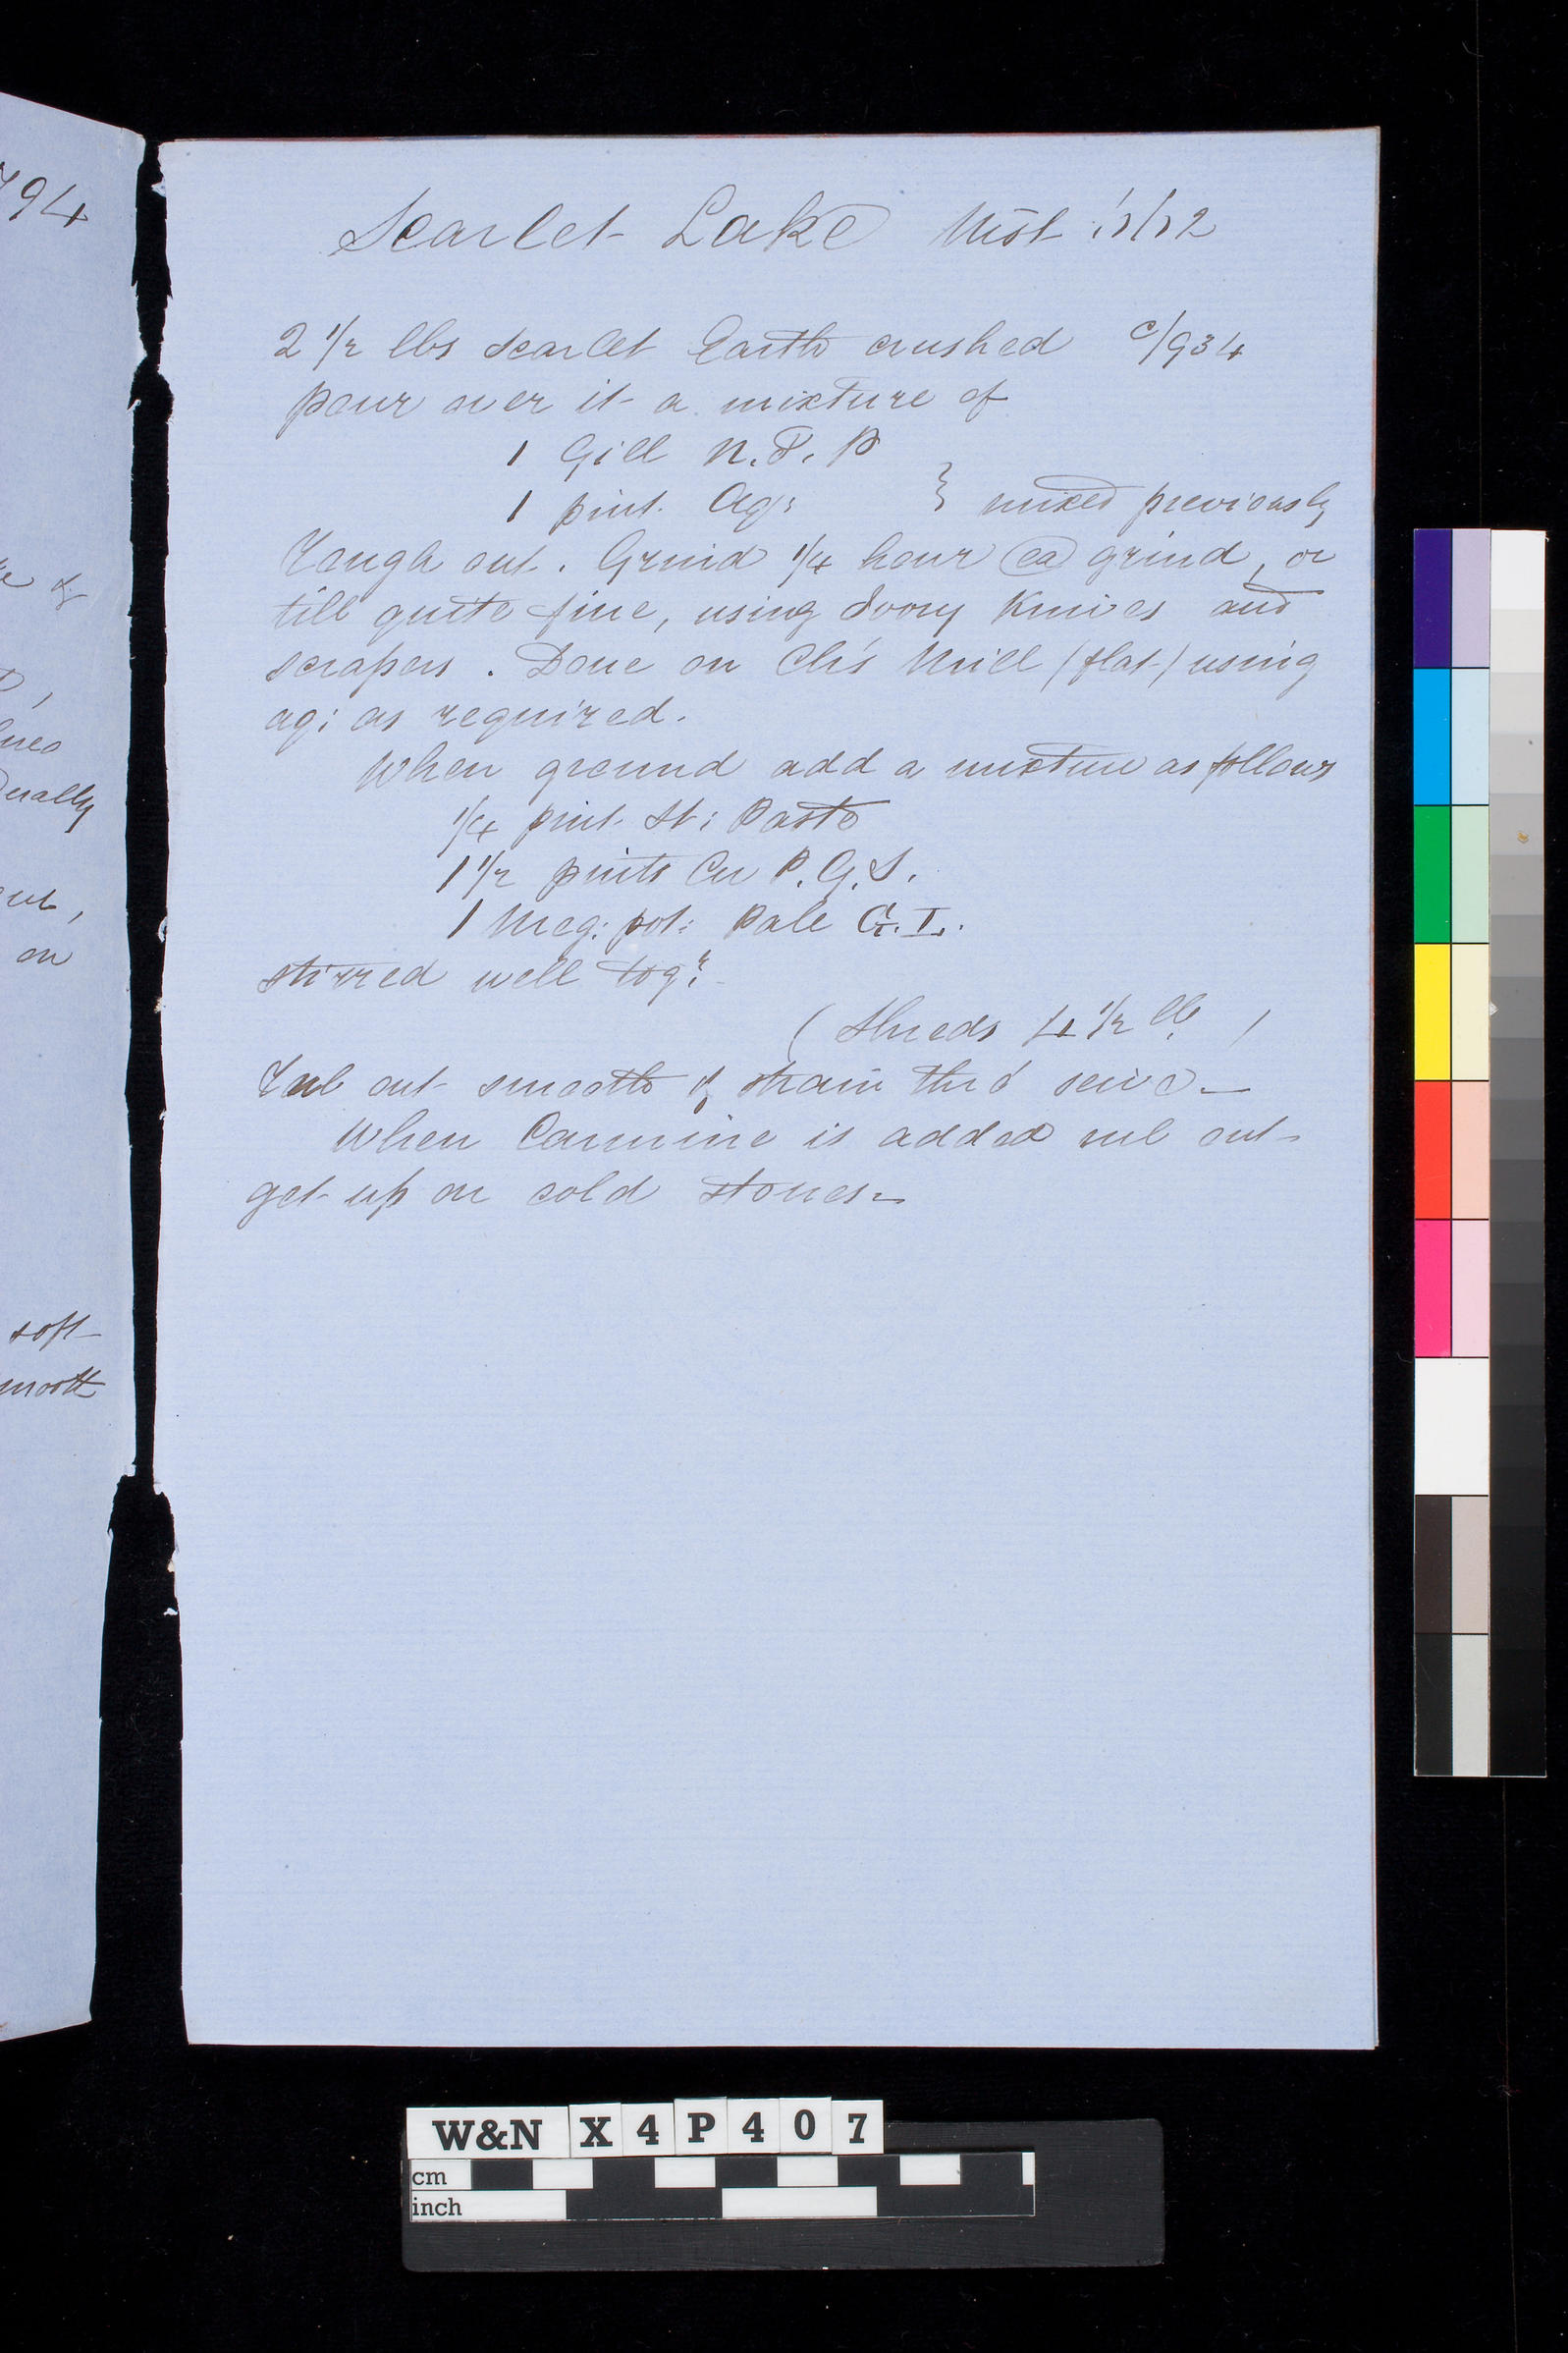 794
Scarlet Lake Moist
2 1/2 lbs Scarlet Earth crushed c/934
pour over it a mixture of
1 Gill N.P.P
1 pint. Aq: } mixed previously
Rough out. Grind 1/4 hour ea grind, or
till quite fine, using Ivory Knives and
scrapers. Done on Ch's Mill (flat) using
aq: as required.
When ground add a mixture as follows
1/4 pint St: Paste
1 1/2 pints Cu P.G.S.
1 Meg: pot: Pale G.I.
stirred well tog:r
(Shreds 4 1/2 lb )
Rub out smooth & strain thro' seive
When Carmine is added rub out
get up on cold stones
ually
on
soft
smooth
W&N X4P407
cm
inch